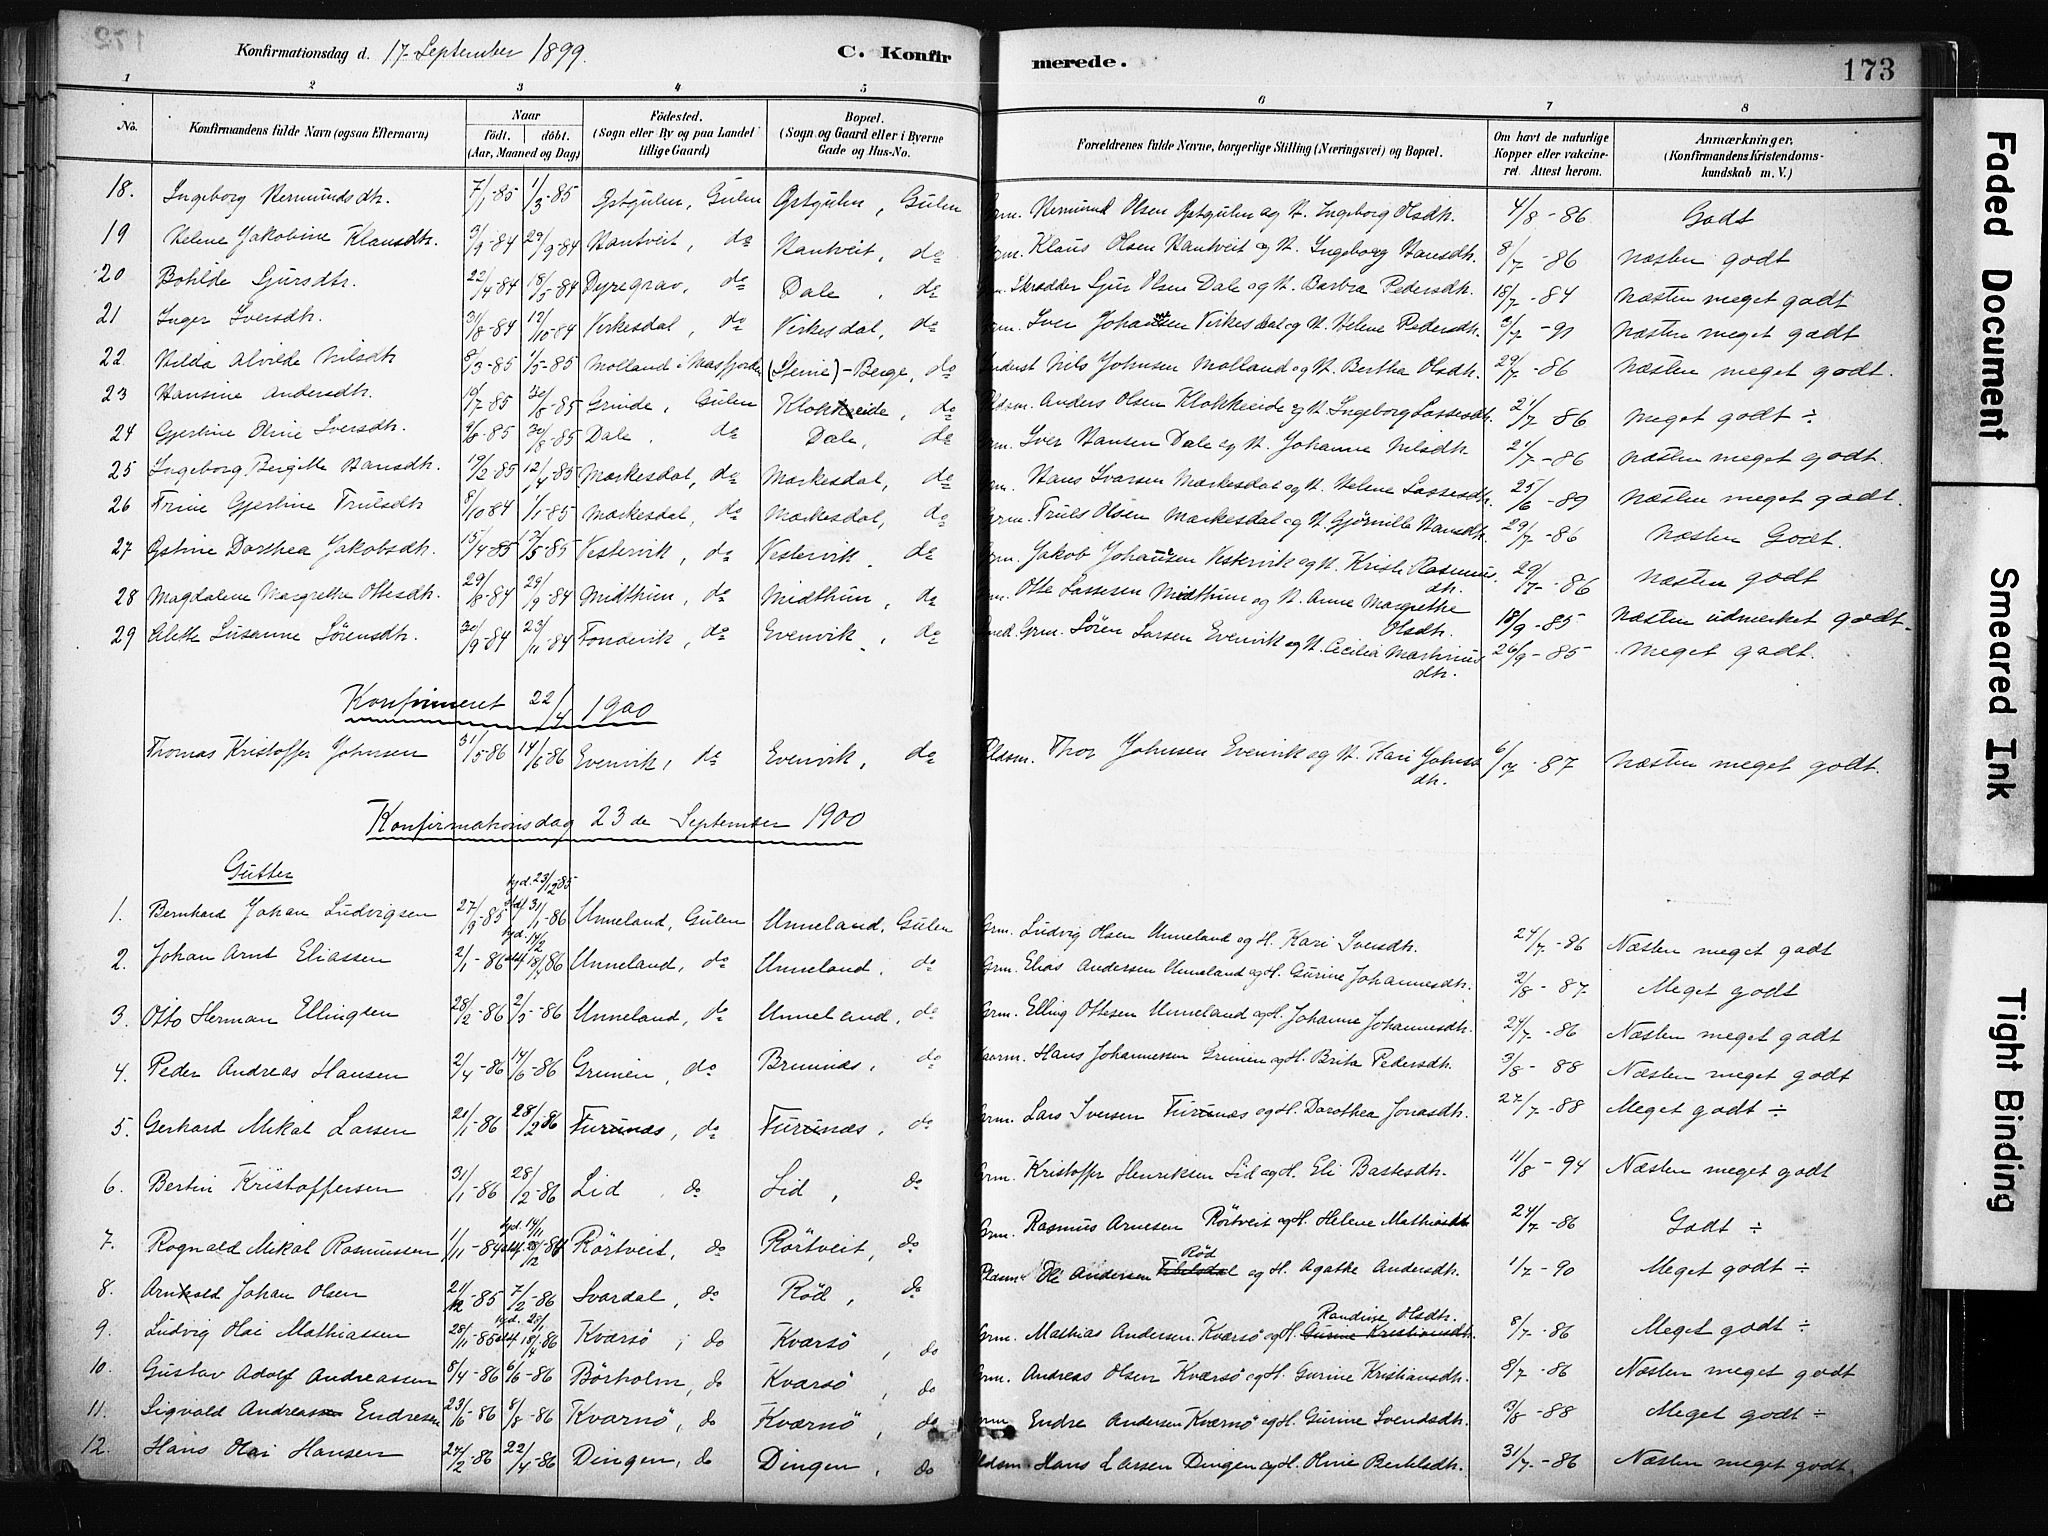 Konfirmationsdag d. 17 September 1899.
C. Konfirmerede.
173
1 2 3 4 5 6 7 8
No.
Konfirmandens fulde Navn (ogsaa Efternavn)
Naar
födt. döbt.
(Aar, Maaned og Dag)
Födested.
(Sogn eller By og paa Landet
tillige Gaard)
Bopæl.
(Sogn og Gaard eller i Byerne
Gade og Hus-No.
Forældrenes fulde Navne, borgerlige Stilling (Næringsvei) og Bopæl.
Om havt de naturlige
Kopper eller vakcine-
ret. Attest herom.
Anmærkninger.
(Konfirmandens Kristendoms-
kundskab m. V.)
18. Ingeborg Nermundsdh. 7/1-85 1/3-85 Østgulen, Gulen Østgulen, Gulen Grm. Nermund Olsen Østgulen og H. Ingeborg Olsdh. 4/8-86 Godt
19 Helene Jakobine Klausdh. 3/9-84 29/9-84 Hantveit, do Hantveit, do Grm. Klaus Olsen Hantveit og H. Ingeborg Hansdh. 8/7-86 Næsten godt
20 Bohilde Sjursdtr. 22/4-84 18/5-84 Dyregrav, do Dale, do Skrædder Sjur Olsen Dale og H. Barbra Pedersdh. 18/7-84 Næsten meget godt
21 Inger Iversdh. 31/8-84 12/10-84 Virkesdal, do Virkesdal, do Grm. Iver Johannesen Virkesdal og H. Helene Pedersdh. 3/7-91 Næsten meget godt
22 Hilda Alvilde Nilsdh 8/3-85 1/5-85 Molland i Masfjorden (Steine)-Berge, do Inderst Nils Johnsen Molland og H. Bertha Olsdh. 29/7-86 Næsten meget godt.
23 Hansine Andersdh. 19/7-85 30/8-85 Grinde, Gulen Klokkeide, do Pldsm. Anders Olsen Klokkeide og H. Ingeborg Lassesdh. 21/7-86 Meget godt ÷
24 Gjertine Oline Iversdh. 9/6-85 30/8-85 Dale, do Dale, do Grm. Iver Hansen Dale og H. Johanne Nilsdh 21/7-86 Næsten meget godt.
25 Ingeborg Birgitte Hansdh. 19/2-85 12/4-85 Mærkesdal, do Mærkesdal, do Grm. Hans Ivarsen Mærkesdal og H. Helene Lassesdh. 25/6-89 Næsten meget godt.
26 Trine Gjertine Trulsdh 8/10 84 1/1-85 Mærkesdal, do Mærkesdal, do Grm. Truls Olsen Mærkesdal og H. Gjørnille Hansdh. 29/7-86 Næsten Godt.
27 Østine Dorthea Jakobsdh. 15/4-85 17/5-85 Vestervik, do Vestervik, do Grm. Jakob Johansen Vestervik og H. Kristi Rasmus
dh. 29/7-86 Næsten godt
28 Magdalene Margrethe Ottesdh. 29/8-84 29/9-84 Midthun, do Midthun, do Grm. Otte Lassesen Midthun og H. Anne Margrethe
Olsdh. 18/9-85 Næsten udmerket godt.
29 Alette Susanne Sørensdh. 30/9-84 23/11-84 Tondevik, do Evenvik, do Grm. Søren Larsen Evenvik og H. Cecilia Martinius
dh. 26/9-85 Meget godt.
Konfirmeret 22/4 1900
Thomas Kristoffer Johnsen 31/5-86 14/6-86 Evenvik, do Evenvik, do Pldsm. Thor Johnsen Evenvik og H. Kari Johns
dh. 6/7-87 Næsten meget godt.
Konfirmationsdag 23de September 1900
Gutter
1. Bernhard Johan Ludvigsen 27/9-85 hjd. 23/12-85 31/1-86 Unneland, Gulen Unneland, Gulen Grm. Ludvig Olsen Unneland og H. Kari Iversdh. 24/7-86 Næsten meget godt
2. Johan Arnt Eliassen 2/1-86 hjd. 14/2 Unneland, do Unneland, do Grm. Elias Andersen Unneland og H. Gurine Johannesdh. 2/8-87 Meget godt
3. Otto Herman Ellingsen 28/2-86 2/5-86 Unneland, do Unneland, do Grm. Elling Ottesen Unneland og H. Johanne Johannesdh. 24/7-86 Næsten meget godt
4. Peder Andreas Hansen 2/4-86 14/6-86 Grinien, do Bruniæs, do Hans Johannessen Grinien og H. Brita Pedersdh. 3/8-88 Næsten meget godt
5. Gerhard Mikal Larsen 21/1-86 28/2 86 Furunæs, do Furunæs, do Grm. Lars Iversen Furunæs og H. Dorothea Jonasdh. 27/7-88 Meget godt ÷
6. Bertin Kristoffersen 31/1-86 28/2-86 Lid, do Lid, do Grm. Kristoffer Henriksen Lid og H. Eli Bastesdh. 11/8-94 Næsten meget godt
7. Rognald Mikal Rasmussen 1/11-84 hjd. 14/11 Rörtveit, do Rörtveit, do Grm. Rasmus Arnesen Rörtveit og H. Helene Mathiasdh 24/7-86 Godt ÷
8. Arnold Johan Olsen 21/12-85 7/2-86 Svardal, do Röd, do Pldsm. Ole Andersen Röd og H. Agathe Andersdh. 1/7-90 Meget godt ÷
9. Ludvig Olai Mathiassen 28/11-85 hjd. 25/1 18/4-86 Kværsö, do Kværsö, do Grm. Mathias Andersen Kværsö og H. Randine Olsdh. Gurine Kristiansdh. 8/7-86 Meget godt ÷
10. Gustav Adolf Andreassen 8/4-86 6/6-86 Börholm, do Kværsö, do Grm. Andreas Olsen Kværsö og H. Gurine Kristiansdh. 8/7-86 Næsten meget godt
11. Sigvald Andreassen Endresen 23/6-86 8/8-86 Kvernö, do Kvernö, do Grm Endre Andersen Kvernö og H. Gurine Svendsdh. 3/8-88 Meget godt ÷
12. Hans Olai Hansen 24/2-86 22/4-86 Dingen, do Dingen, do Pldsm. Hans Larsen Dingen og H. Oline Bertelsdh. 31/7-86 Næsten meget godt.
Faded Document
Smeared Ink
Tight Binding